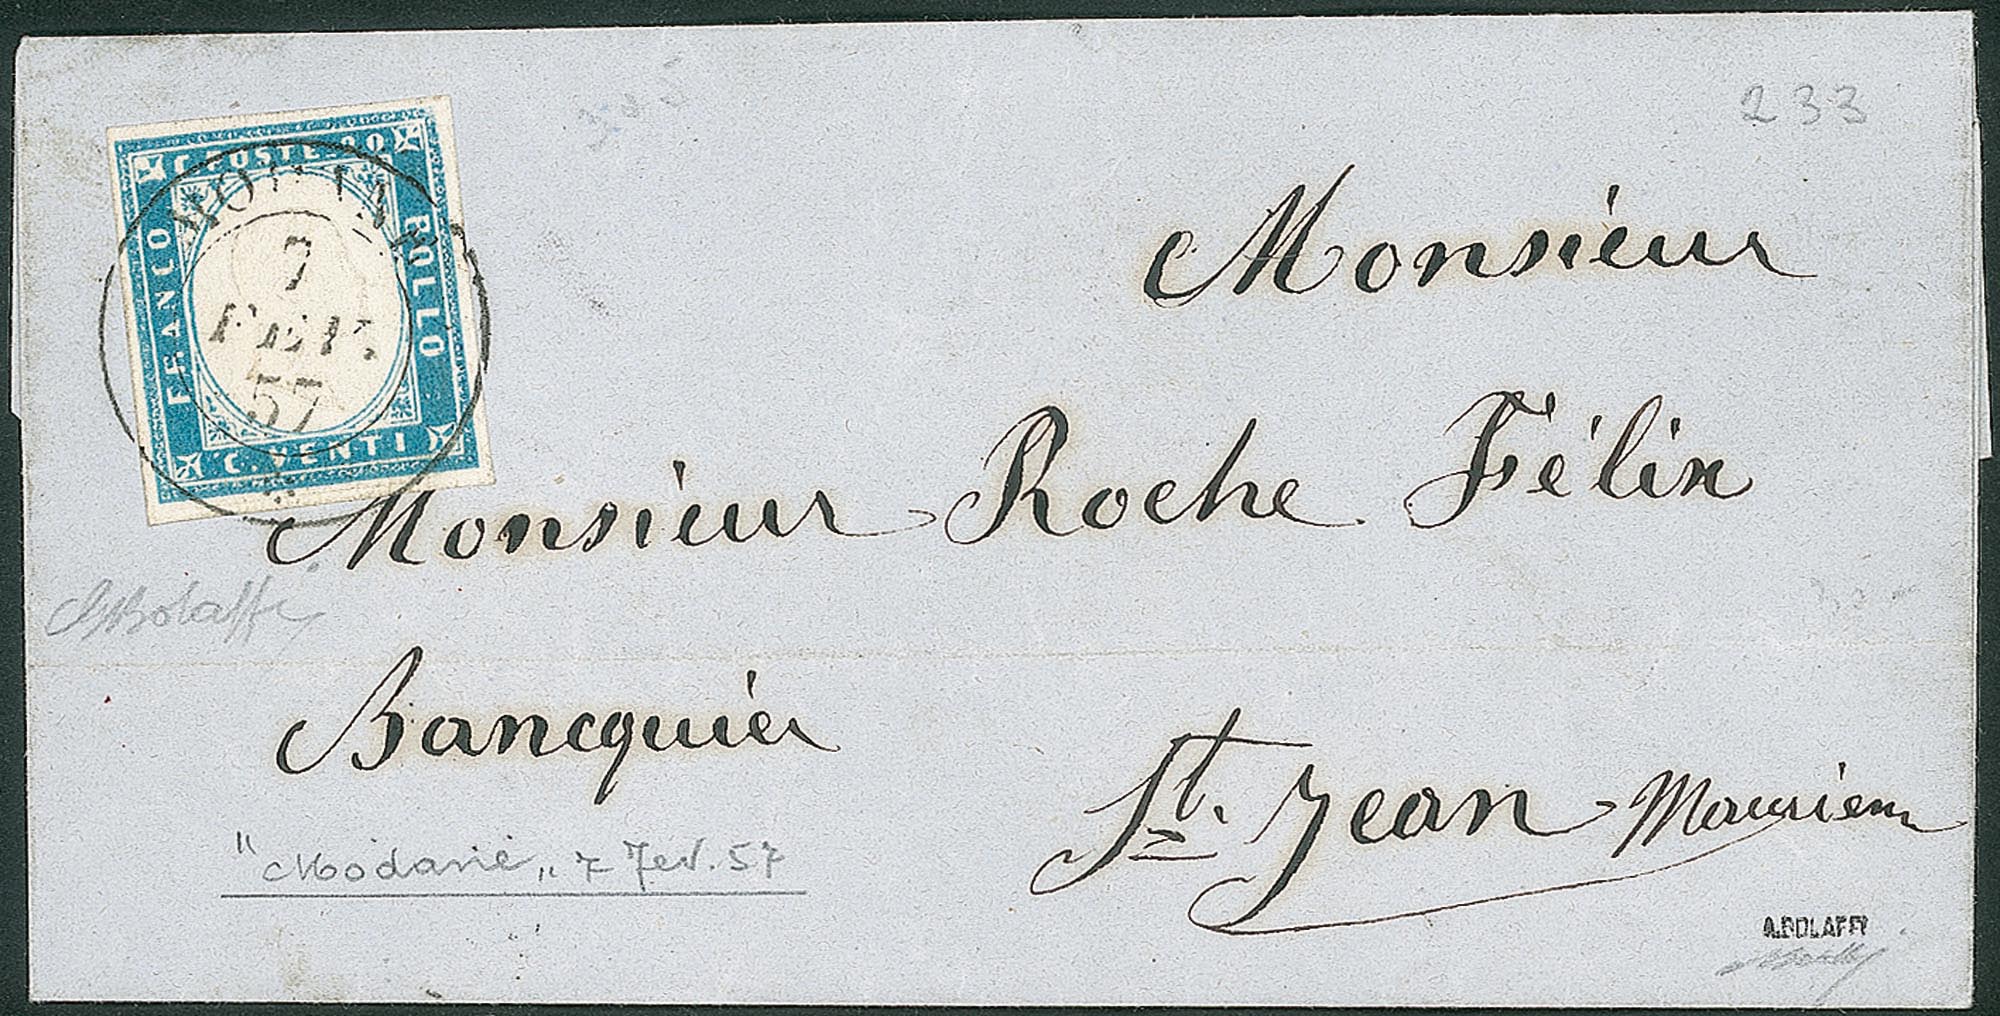 233
C. POSTE. 20
FRANCO
BOLLO
C. VENTI
7
FEV.
57
Monsieur
Monsieur Roche Félix
Bolaffi
Bancquier
St. Jean Maurienne
"Modane" 7 Fev. 57
A. BOLAFFI